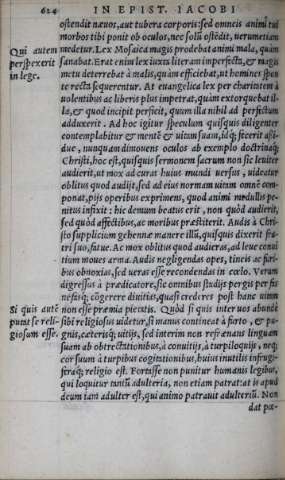 624 IN EPIST. IACOBI
ostendit næuos, aut tubera corporis: sed omneis animi tui
morbos tibi ponit ob oculos, nec solū ostēdit, uerumetiam
Qui autem medetur. Lex Mosaica magis prodebat animi mala, quàm
perspexerit sanabat. Erat enim lex iuxta literam imperfecta, & magis
in lege. metu deterrebat à malis, quàm efficiebat, ut homines spon
te recta sequerentur. At euangelica lex per charitatem à
uolentibus ac liberis plus impetrat, quàm extorquebat il-
la, & quod incipit perficit, quum illa nihil ad perfectum
adduxerit. Ad hoc igitur speculum quisquis diligenter
contemplabitur & mentē & uitam suam, idq́; fecerit assi
due, nunquam dimouens oculos ab exemplo doctrinaq́;
Christi, hoc est, quisquis sermonem sacrum non sic leuiter
audierit, ut mox ad curas huius mundi uersus, uideatur
oblitus quod audijt, sed ad eius normam uitam omnē com
ponat, pijs operibus exprimens, quod animi medullis pe-
nitus infixit: hic demum beatus erit, non quòd audierit,
sed quòd affectibus, ac moribus præstiterit. Audis à Chri-
sto supplicium gehennæ manere illū, quisquis dixerit fra-
tri suo, fatue. Ac mox oblitus quod audieras, ad leue conui
tium moues arma. Audis negligendas opes, tineis ac furi-
bus obnoxias, sed ueras esse recondendas in cœlo. Verum
digressus à prædicatore, sic omnibus studijs pergis per fas
nefasq́; cōgerere diuitias, quasi crederes post hanc uitam
Si quis autē non esse præmia pietatis. Quòd si quis inter uos abunde
putat se reli- sibi religiosus uidetur, si manus contineat à furto, & pu-
giosum esse. gnis, cæterisq́; uitijs, sed interim non refrænans linguam
suam ab obtrectationibus, à conuitijs, à turpiloquijs, neq́;
cor suum à turpibus cogitationibus, huius inutilis infrugi-
feraq́; religio est. Fortasse non punitur humanis legibus,
qui loquitur tantū adulteria, non etiam patrat: at is apud
deum iam adulter est, qui animo patrauit adulteriū. Non
dat pœ-